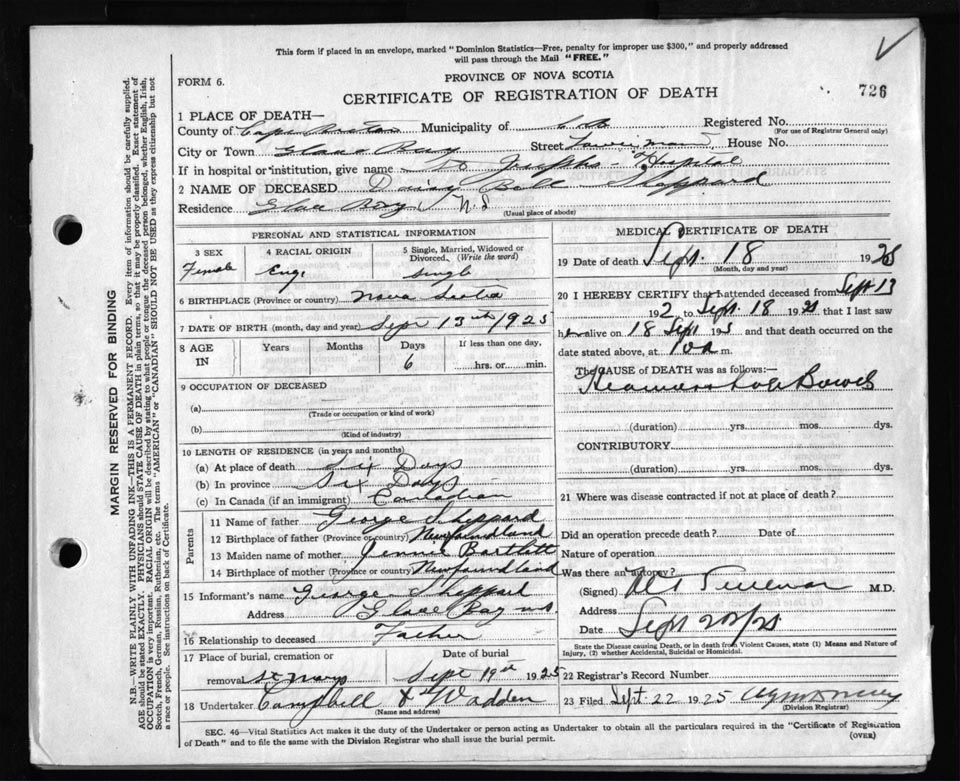 This form if placed in an envelope, marked "Dominion Statistics—Free, penalty for improper use $300," and properly addressed
will pass through the Mail "FREE."
FORM 6.
PROVINCE OF NOVA SCOTIA
CERTIFICATE OF REGISTRATION OF DEATH
726
1 PLACE OF DEATH—
County of Cape Breton Municipality of C B Registered No.
(For use of Registrar General only)
City or Town Glace Bay Street House No.
If in hospital or institution, give name St Josephs Hospital
2 NAME OF DECEASED Daisy Bell Sheppard
Residence Glace Bay N S
(Usual place of abode)
PERSONAL AND STATISTICAL INFORMATION
3 SEX
Female
4 RACIAL ORIGIN
Eng.
5 Single, Married, Widowed or
Divorced. (Write the word)
single
6 BIRTHPLACE (Province or country) Nova Scotia
7 DATE OF BIRTH (month, day and year) Sept 13th 1925
8 AGE
IN
Years Months Days
6
If less than one day,
hrs. or min.
9 OCCUPATION OF DECEASED
(a)
(Trade or occupation or kind of work)
(b)
(Kind of industry)
10 LENGTH OF RESIDENCE (in years and months)
(a) At place of death Six Days
(b) In province Six Days
(c) In Canada (if an immigrant) Canadian
Parents
11 Name of father George Sheppard
12 Birthplace of father (Province or country) Newfoundland
13 Maiden name of mother Jennie Bartlett
14 Birthplace of mother (Province or country) Newfoundland
15 Informant's name George Sheppard
Address Glace Bay NS
16 Relationship to deceased Father
17 Place of burial, cremation or
removal St Marys
Date of burial
Sept 19th 1925
18 Undertaker Campbell & Wadden
(Name and address)
MEDICAL CERTIFICATE OF DEATH
19 Date of death Sept. 18 1925
(Month, day and year)
20 I HEREBY CERTIFY that I attended deceased from Sept 13
192 to Sept. 18 1925 that I last saw
her alive on 18 Sept 1925 and that death occurred on the
date stated above, at 10 a m.
The CAUSE OF DEATH was as follows:—
Bowels
(duration) yrs. mos. dys.
CONTRIBUTORY
(duration) yrs. mos. dys.
21 Where was disease contracted if not at place of death?
Did an operation precede death? Date of
Nature of operation
Was there an autopsy?
(Signed) M.D.
Address
Date Sept 20/25
State the Disease causing Death, or in death from Violent Causes, state (1) Means and Nature of
Injury, (2) whether Accidental, Suicidal or Homicidal.
22 Registrar's Record Number
23 Filed Sept 22 1925
(Division Registrar)
SEC. 46—Vital Statistics Act makes it the duty of the Undertaker or person acting as Undertaker to obtain all the particulars required in the "Certificate of Registration
of Death" and to file the same with the Division Registrar who shall issue the burial permit.
(OVER)
MARGIN RESERVED FOR BINDING
N.B.—WRITE PLAINLY WITH UNFADING INK—THIS IS A PERMANENT RECORD. Every item of information should be carefully supplied.
AGE should be stated EXACTLY. PHYSICIANS should STATE CAUSE OF DEATH in plain terms, so that it may be properly classified. Exact statement of
OCCUPATION is very important. RACIAL ORIGIN will be described by stating to what people or tongue the deceased person belonged, whether English, Irish,
Scotch, French, German, Russian, Ruthenian, etc. The terms "AMERICAN" or "CANADIAN" SHOULD NOT BE USED as they express citizenship but not
a race or people. See instructions on back of Certificate.